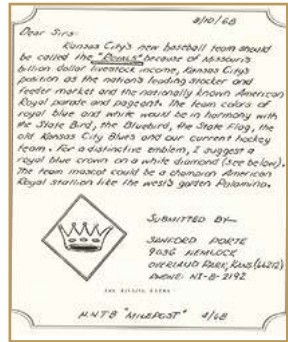 2/10/68
Dear Sirs-
Kansas City's new baseball team should
be called the "ROYALS" because of Missouri's
billion dollar livestock income, Kansas City's
position as the nation's leading stocker and
feeder market and the nationally known American
Royal parade and pageant. The team colors of
royal blue and white would be in harmony with
the State Bird, the Bluebird, the State Flag, the
old Kansas City Blues and our current hockey
team. For a distinctive emblem, I suggest a
royal blue crown on a white diamond (see below).
The team mascot could be a champion American
Royal stallion like the west's golden Palomino.
SUBMITTED BY-
SANFORD PORTE
9036 HEMLOCK
OVERLAND PARK, KANS (66212)
PHONE: NI-8-2192
H.N.T.B "MILEPOST" 4/68